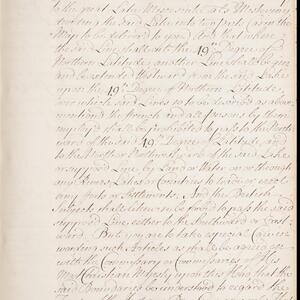 to the part Lake Miscosinke als Mistoseny
the Said Line into two parts (as in the
Map to be delivered to you) And that where
the said Line shall cut the 49th Degree of
Northern Latitude another Line shall begin
and be extended Westward from the said Lake
upon the 49th Degree of Northern Latitude,
over which said Lines so to be described as above
mentiond the French and all persons by them
employed shall be prohibited to pass to the North
ward of the said 49th Degree of Latitude, and
to the North or Northwestward of the said Lake
or supposed Line by Land or Water on or through
any Rivers, Lakes or Countries to trade, erect
any Forts or Settlements, And the British
Subjects shall likewise be forbid to pass the said
supposed Line either to the Southward or East
ward. But you are to take especial Care in
wording such Articles as shall be agreed on
with the Commissary or Commissarys of His
Most Christian Majesty upon this Head, that the
said Boundarys be understood to regard the